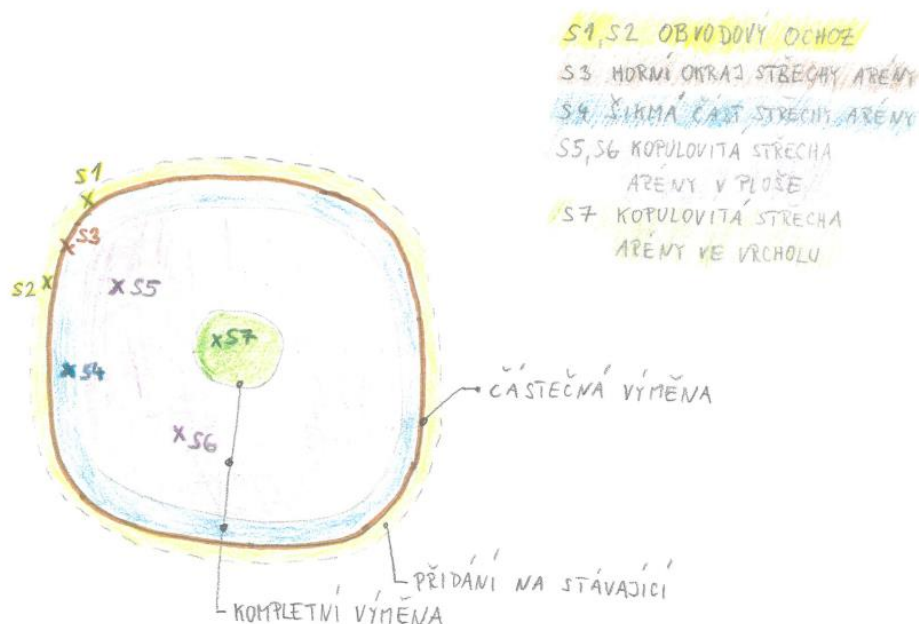 S1,S2 OBVODOVÝ OCHOZ
S3 HORNÍ OKRAJ STŘECHY ARÉNY
S4 ŠIKMÁ ČÁST STŘECHY ARÉNY
S5,S6 KOPULOVITÁ STŘECHA
ARÉNY V PLOŠE
S7 KOPULOVITÁ STŘECHA
ARÉNY VE VRCHOLU
S1
S3
S2
S5
S7
S4
ČÁSTEČNÁ VÝMĚNA
S6
PŘIDÁNÍ NA STÁVAJÍCÍ
KOMPLETNÍ VÝMĚNA